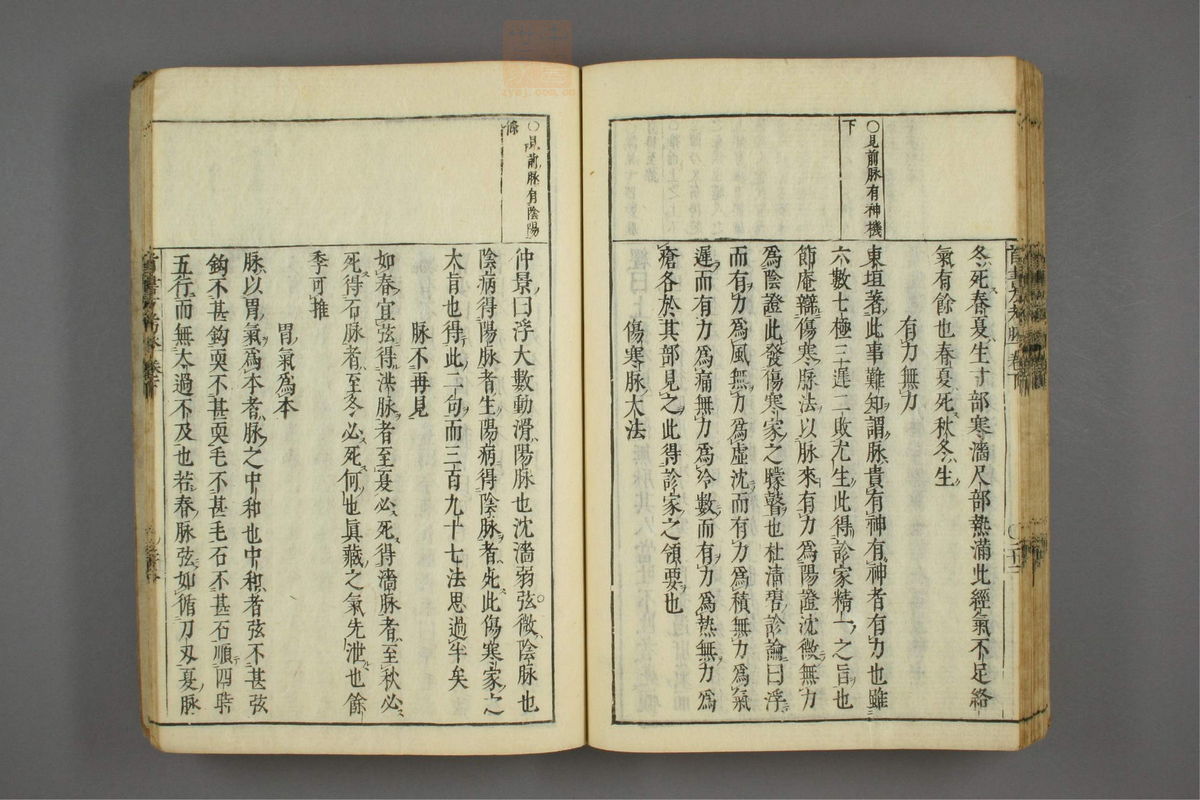 ○見前脉有神機
下
冬死春夏生寸部寒濇尺部熱滿此經氣不足絡
氣有餘也春夏死秋冬生
有力無力
東垣著此事難知謂脉貴有神有神者有力也雖
六數七極三遲二敗尤生此得診家精一之旨也
節庵辯傷寒脉法以脉來有力爲陽證沈微無力
爲陰證此發傷寒家之矇瞽也杜清碧診論曰浮
而有力爲風無力爲虛沈而有力爲積無力爲氣
遲而有力爲痛無力爲冷數而有力爲熱無力爲
瘡各於其部見之此得診家之領要也
傷寒脉大法
○見前脉有陰陽
條
仲景曰浮大數動滑陽脉也沈濇弱弦微陰脉也
陰病得陽脉者生陽病得陰脉者死此傷寒家之
大旨也得此二句而三百九十七法思過半矣
脉不再見
如春宜弦得洪脉者至夏必死得濇脉者至秋必
死得石脉者至冬必死何也眞藏之氣先泄也餘
季可推
胃氣爲本
脉以胃氣爲本者脉之中和也中和者弦不甚弦
鉤不甚鉤耎不甚耎毛不甚毛石不甚石順四時
五行而無太過不及也若春脉弦如循刀刃夏脉